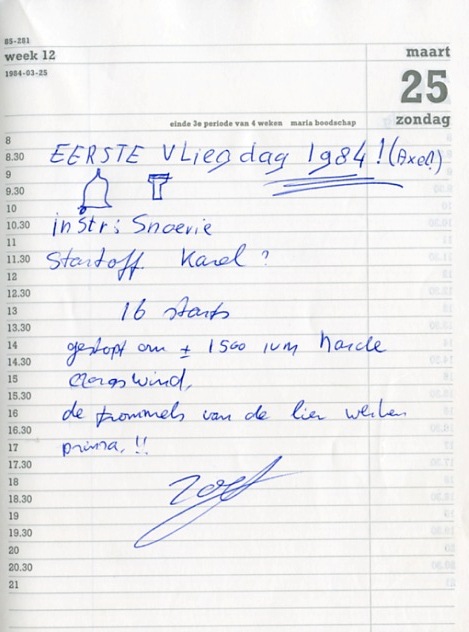 85-281
week 12
maart
1984-03-25
25
zondag
einde 3e periode van 4 weken maria boodschap
8
8.30 EERSTE Vliegdag 1984! (Axel!)
9
9.30
10
10.30 instr: Snoevie
11
11.30 Startoff Karel?
12
12.30
13 16 starts
13.30
14 gestopt om ± 1500 ivm harde
14.30
15 dwarswind,
15.30
16 de trommels van de lier werken
16.30
17 prima.!!
17.30
18
18.30
19
19.30
20
20.30
21